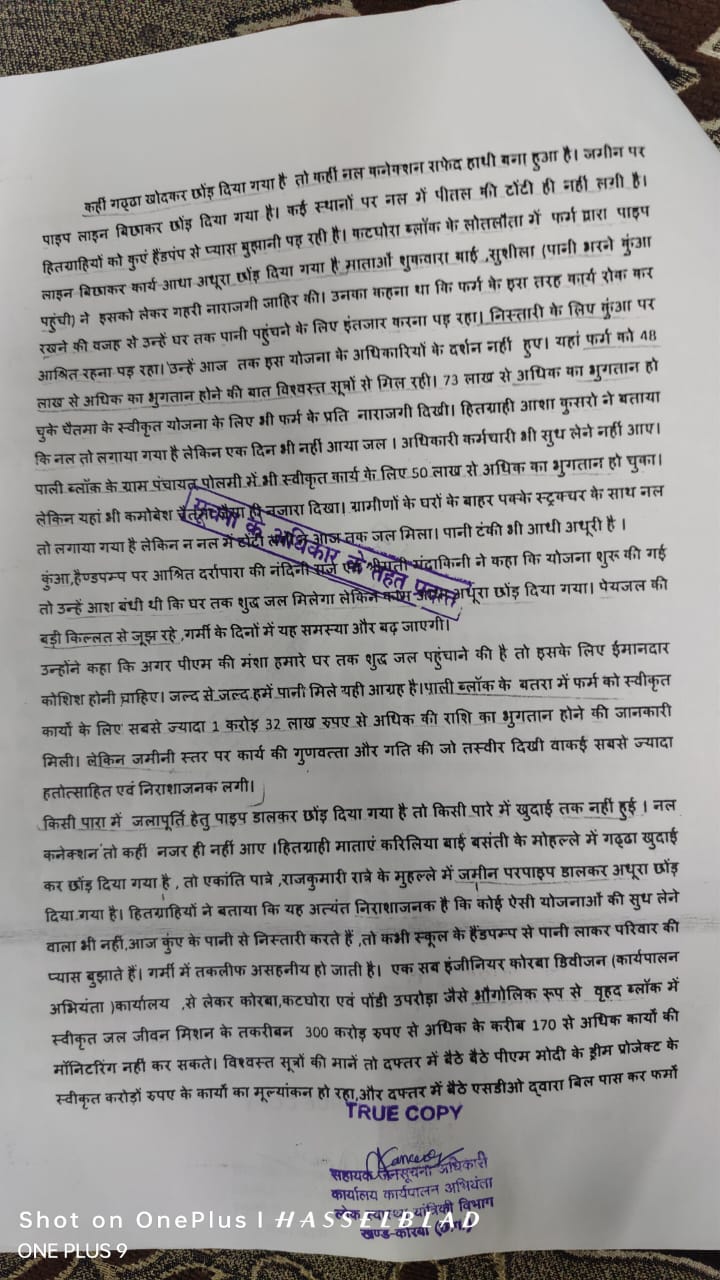 कहीं गढ्ढा खोदकर छोंड़ दिया गया है तो कहीं नल कनेक्शन सफेद हाथी बना हुआ है। जमीन पर
पाइप लाइन बिछाकर छोंड़ दिया गया है। कई स्थानों पर नल में पीतल की टोंटी ही नहीं लगी है।
हितग्राहियों को कुएं हैंडपंप से प्यास बुझानी पड़ रही है। कटघोरा ब्लॉक के लोतलौता में फर्म द्वारा पाइप
लाइन बिछाकर कार्य आधा अधूरा छोंड़ दिया गया है माताओं शुकवारा बाई ,सुशीला (पानी भरने कुंआ
पहुंची) ने इसको लेकर गहरी नाराजगी जाहिर की। उनका कहना था कि फर्म के इस तरह कार्य रोक कर
रखने की वजह से उन्हें घर तक पानी पहुंचने के लिए इंतजार करना पड़ रहा। निस्तारी के लिए कुंआ पर
आश्रित रहना पड़ रहा। उन्हें आज तक इस योजना के अधिकारियों के दर्शन नहीं हुए। यहां फर्म को 48
लाख से अधिक का भुगतान होने की बात विश्वस्त सूत्रों से मिल रही। 73 लाख से अधिक का भुगतान हो
चुके चैतमा के स्वीकृत योजना के लिए भी फर्म के प्रति नाराजगी दिखी। हितग्राही आशा कुसरो ने बताया
कि नल तो लगाया गया है लेकिन एक दिन भी नहीं आया जल । अधिकारी कर्मचारी भी सुध लेने नहीं आए।
पाली ब्लॉक के ग्राम पंचायत पोलमी में भी स्वीकृत कार्य के लिए 50 लाख से अधिक का भुगतान हो चुका।
लेकिन यहां भी कमोबेश चैतमा जैसा ही नजारा दिखा। ग्रामीणों के घरों के बाहर पक्के स्ट्रक्चर के साथ नल
तो लगाया गया है लेकिन न नल में टोंटी आज तक जल मिला। पानी टंकी भी आधी अधूरी है ।
कुंआ,हैण्डपम्प पर आश्रित दर्रापारा की नंदिनी मंदाकिनी ने कहा कि योजना शुरू की गई
तो उन्हें आश बंधी थी कि घर तक शुद्ध जल मिलेगा लेकिन काम अधूरा छोंड़ दिया गया। पेयजल की
बड़ी किल्लत से जूझ रहे ,गर्मी के दिनों में यह समस्या और बढ़ जाएगी।
सूचना के अधिकार के तहत प्रदत्त
उन्होंने कहा कि अगर पीएम की मंशा हमारे घर तक शुद्ध जल पहुंचाने की है तो इसके लिए ईमानदार
कोशिश होनी चाहिए। जल्द से जल्द हमें पानी मिले यही आग्रह है।पाली ब्लॉक के बतरा में फर्म को स्वीकृत
कार्यो के लिए सबसे ज्यादा 1 करोड़ 32 लाख रुपए से अधिक की राशि का भुगतान होने की जानकारी
मिली। लेकिन जमीनी स्तर पर कार्य की गुणवत्ता और गति की जो तस्वीर दिखी वाकई सबसे ज्यादा
हतोत्साहित एवं निराशाजनक लगी।
किसी पारा में जलापूर्ति हेतु पाइप डालकर छोंड़ दिया गया है तो किसी पारे में खुदाई तक नहीं हुई । नल
कनेक्शन तो कहीं नजर ही नहीं आए ।हितग्राही माताएं करिलिया बाई बसंती के मोहल्ले में गढ्ढा खुदाई
कर छोंड़ दिया गया है , तो एकांति पात्रे ,राजकुमारी रात्रे के मुहल्ले में जमीन परपाइप डालकर अधूरा छोंड़
दिया गया है। हितग्राहियों ने बताया कि यह अत्यंत निराशाजनक है कि कोई ऐसी योजनाओं की सुध लेने
वाला भी नहीं,आज कुंए के पानी से निस्तारी करते हैं ,तो कभी स्कूल के हैंडपम्प से पानी लाकर परिवार की
प्यास बुझाते हैं। गर्मी में तकलीफ असहनीय हो जाती है। एक सब इंजीनियर कोरबा डिवीजन (कार्यपालन
अभियंता )कार्यालय ,से लेकर कोरबा,कटघोरा एवं पोंडी उपरोड़ा जैसे भौगोलिक रूप से वृहद ब्लॉक में
स्वीकृत जल जीवन मिशन के तकरीबन 300 करोड़ रुपए से अधिक के करीब 170 से अधिक कार्यो की
मॉनिटरिंग नहीं कर सकते। विश्वस्त सूत्रों की मानें तो दफ्तर में बैठे बैठे पीएम मोदी के ड्रीम प्रोजेक्ट के
स्वीकृत करोड़ों रुपए के कार्यो का मूल्यांकन हो रहा,और दफ्तर में बैठे एसडीओ द्वारा बिल पास कर फर्मो
TRUE COPY
सहायक जनसूचना अधिकारी
कार्यालय कार्यपालन अभियंता
लोक स्वास्थ्य यांत्रिकी विभाग
खण्ड-कोरबा (छ.ग.)
Shot on OnePlus | HASSELBLAD
ONE PLUS 9